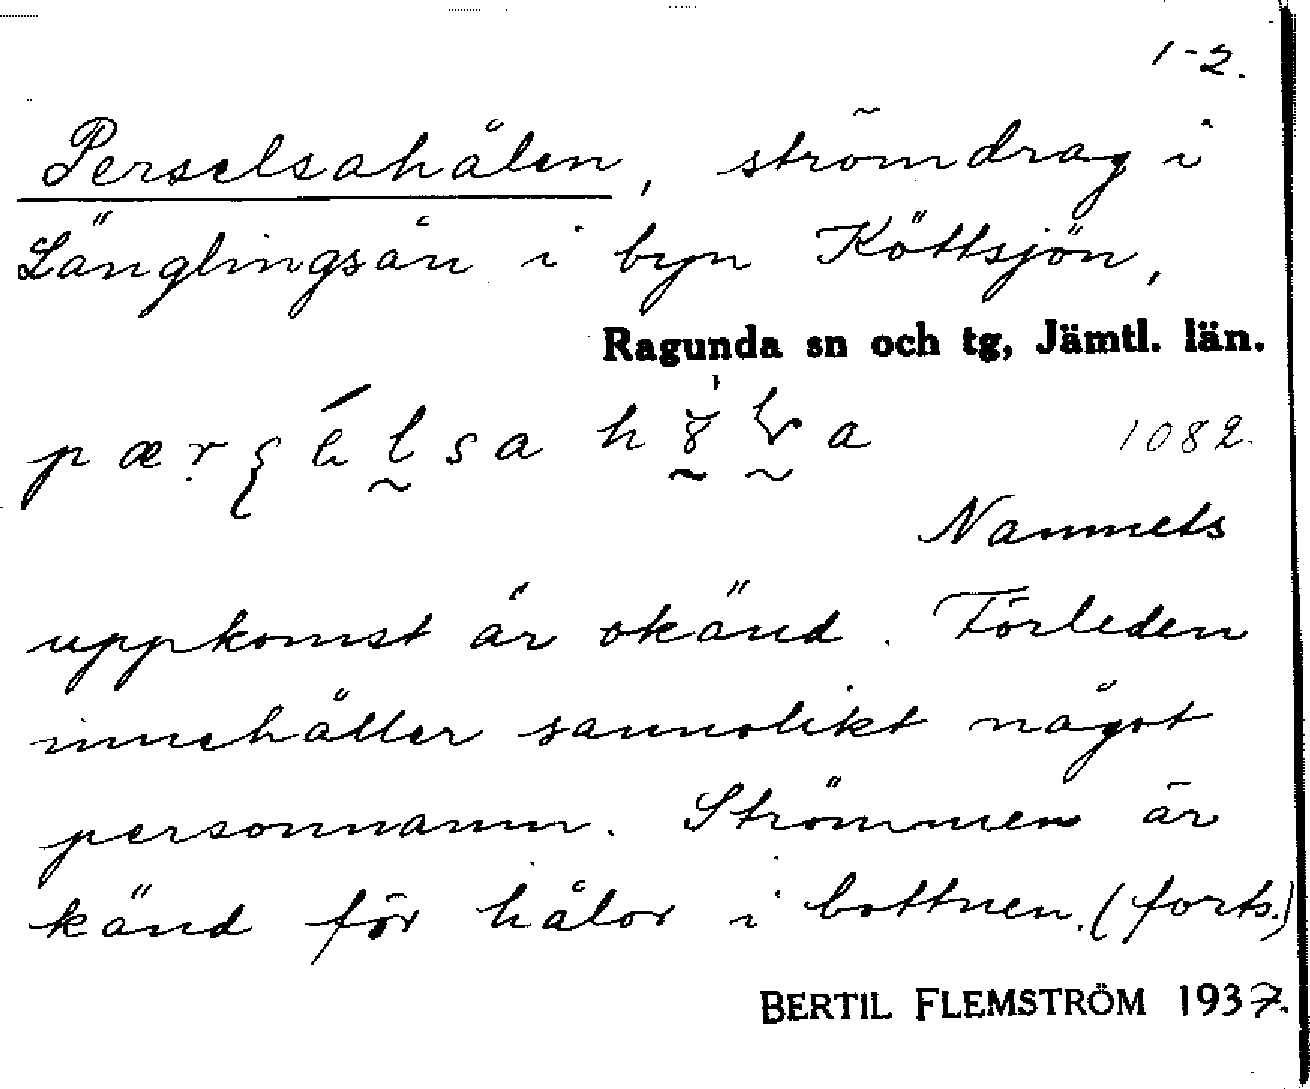 1-2.
Perselsahålen, strömdrag i
Länglingsån i byn Köttsjön,
Ragunda sn och tg, Jämtl. län.
1082.
Namnets
uppkomst är okänd. Förleden
innehåller sannolikt något
personnamn. Strömmen är
känd för hålor i bottnen. (forts.)
BERTIL FLEMSTRÖM 1937.